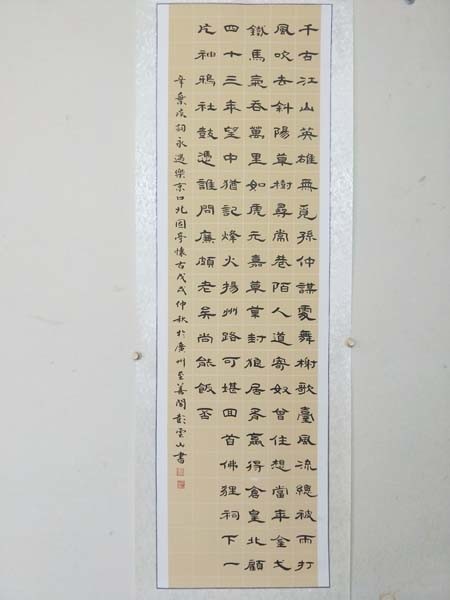 千古江山英雄無覓孫仲謀處舞榭歌臺風流總被雨打
風吹去斜陽草樹尋常巷陌人道寄奴曾住想當年金戈
鐵馬氣吞萬里如虎元嘉草草封狼居胥贏得倉皇北顧
四十三年望中猶記烽火揚州路可堪回首佛狸祠下一
片神鴉社鼓憑誰問廉頗老矣尚能飯否
辛棄疾詞永遇樂京口北固亭懷古戊戌仲秋於廣州至善閣彭雲山書